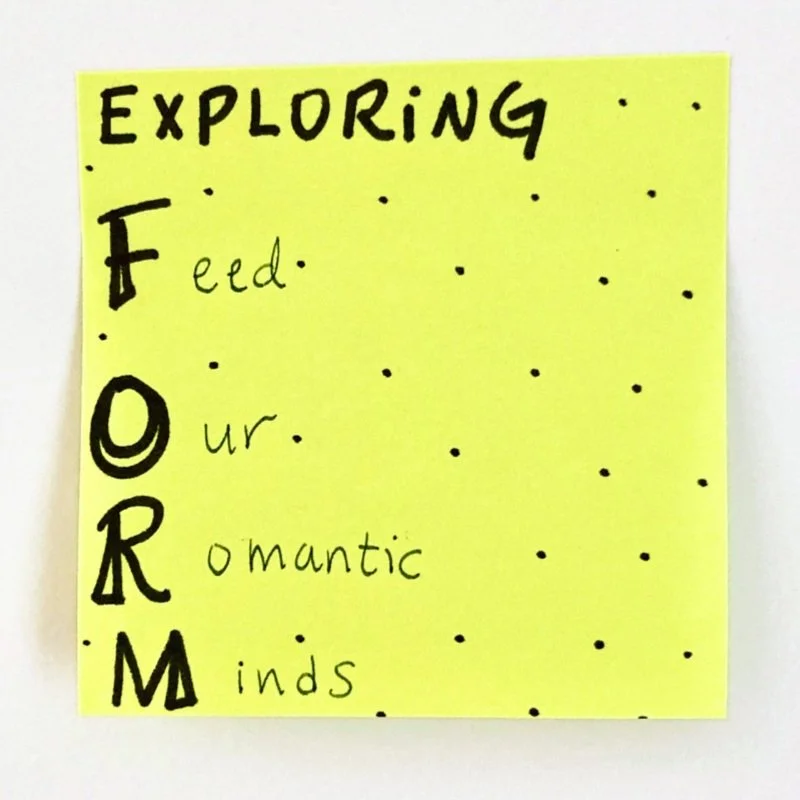 EXPLORiNG
Feed
Our
Romantic
Minds